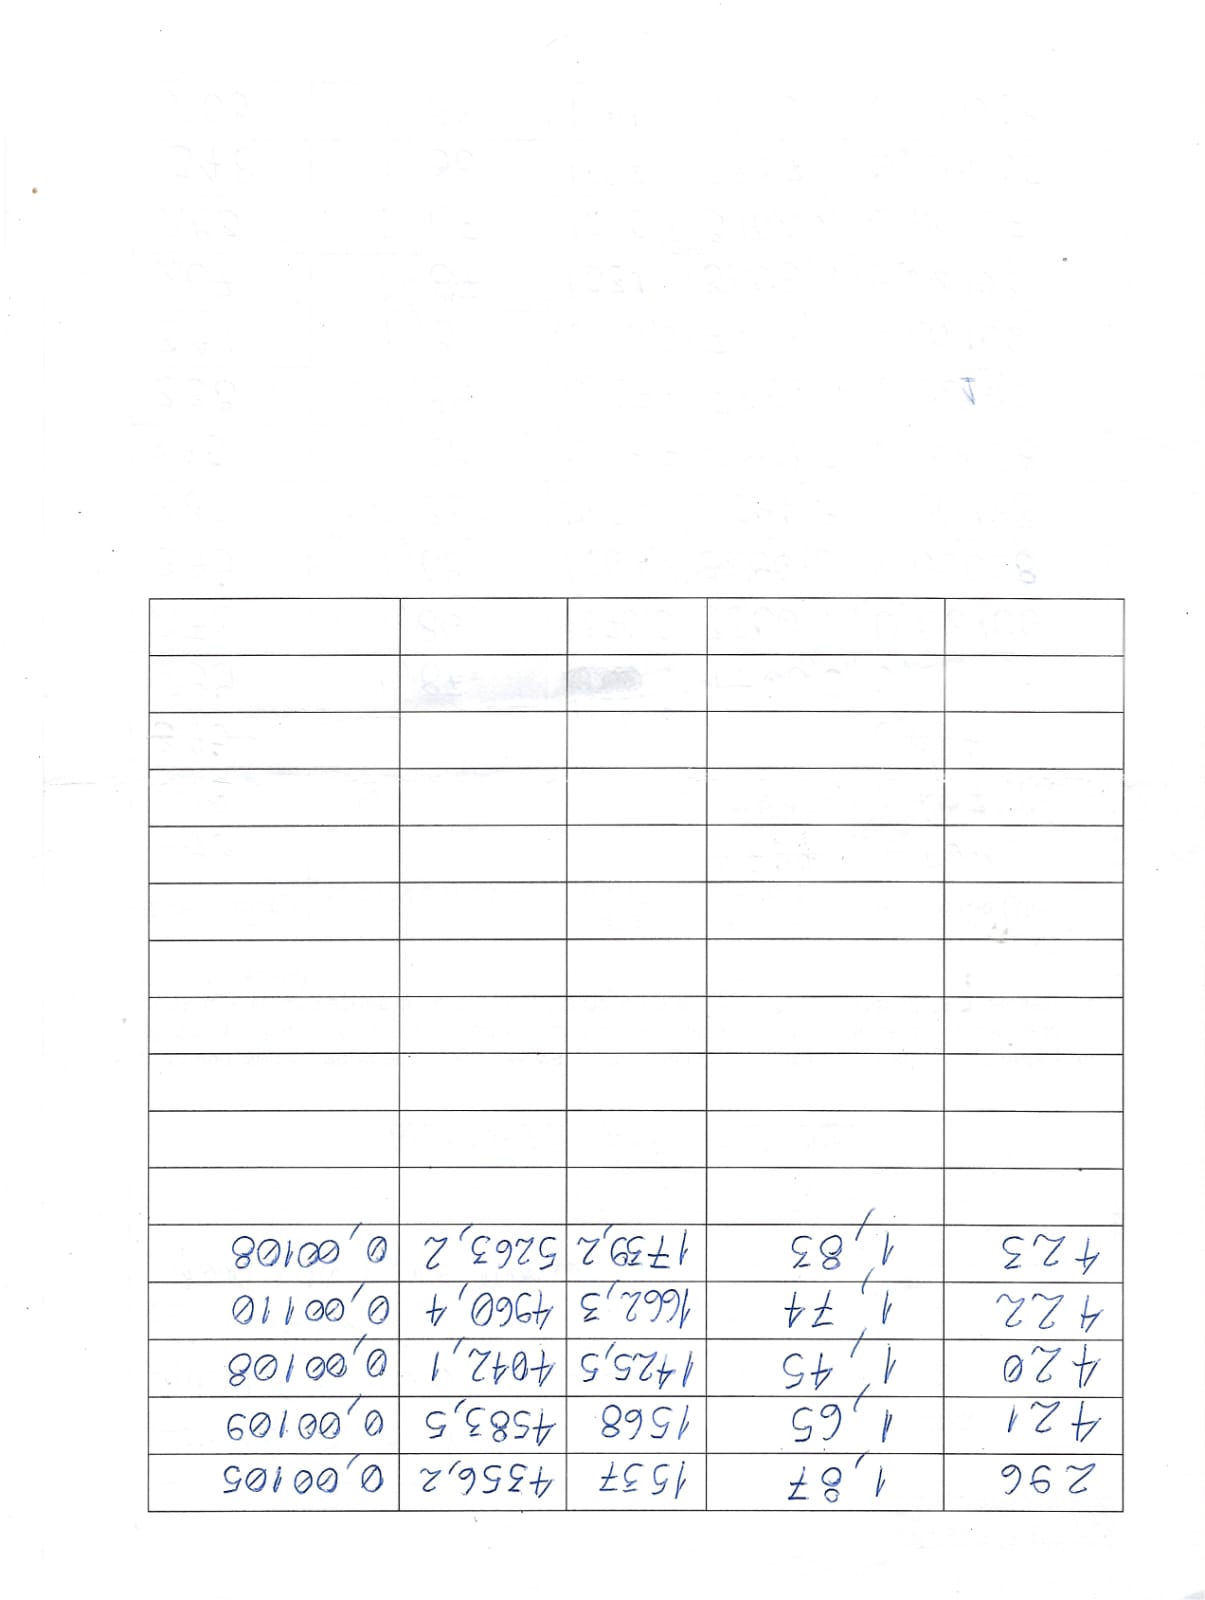 296 1,87 1537 4356,2 0,00105
421 1,65 1568 4583,5 0,00109
420 1,45 1425,5 4042,1 0,00108
422 1,74 1662,3 4960,4 0,00110
423 1,83 1739,2 5263,2 0,00108